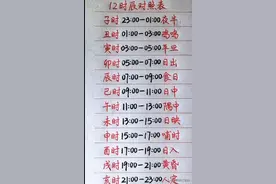 12时辰对照表
子时23:00-01:00夜半
丑时01:00-03:00鸡鸣
寅时03:00-05:00平旦
卯时05:00-07:00日出
辰时07:00-09:00食日
巳时09:00-11:00日中
午时11:00-13:00隅中
未时13:00-15:00日映
申时15:00-17:00哺时
酉时17:00-19:00日入
戌时19:00-21:00黄昏
亥时21:00-23:00人定